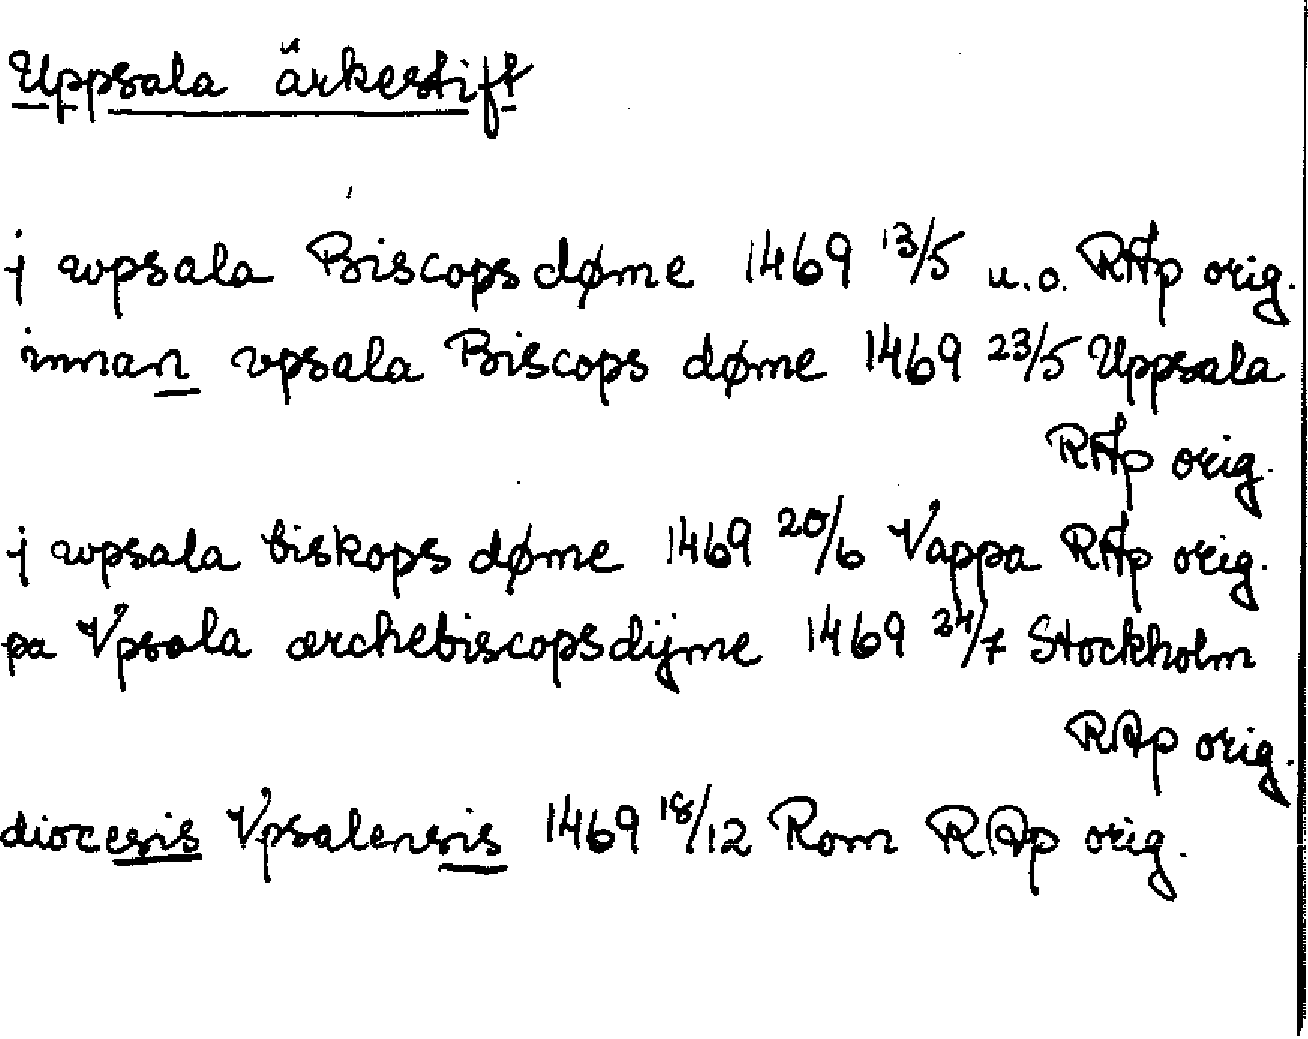 Uppsala ärkestift
j wpsala Biscops døme 1469 13/5 u.o. RAp orig.
innan vpsala Biscops døme 1469 23/5 Uppsala
RAp orig.
j wpsala biskops døme 1469 20/6 Vappa RAp orig.
pa Vpsala ærchebiscopsdijme 1469 24/7 Stockholm
RAp orig.
diocesis Vpsalensis 1469 18/12 Rom RAp orig.